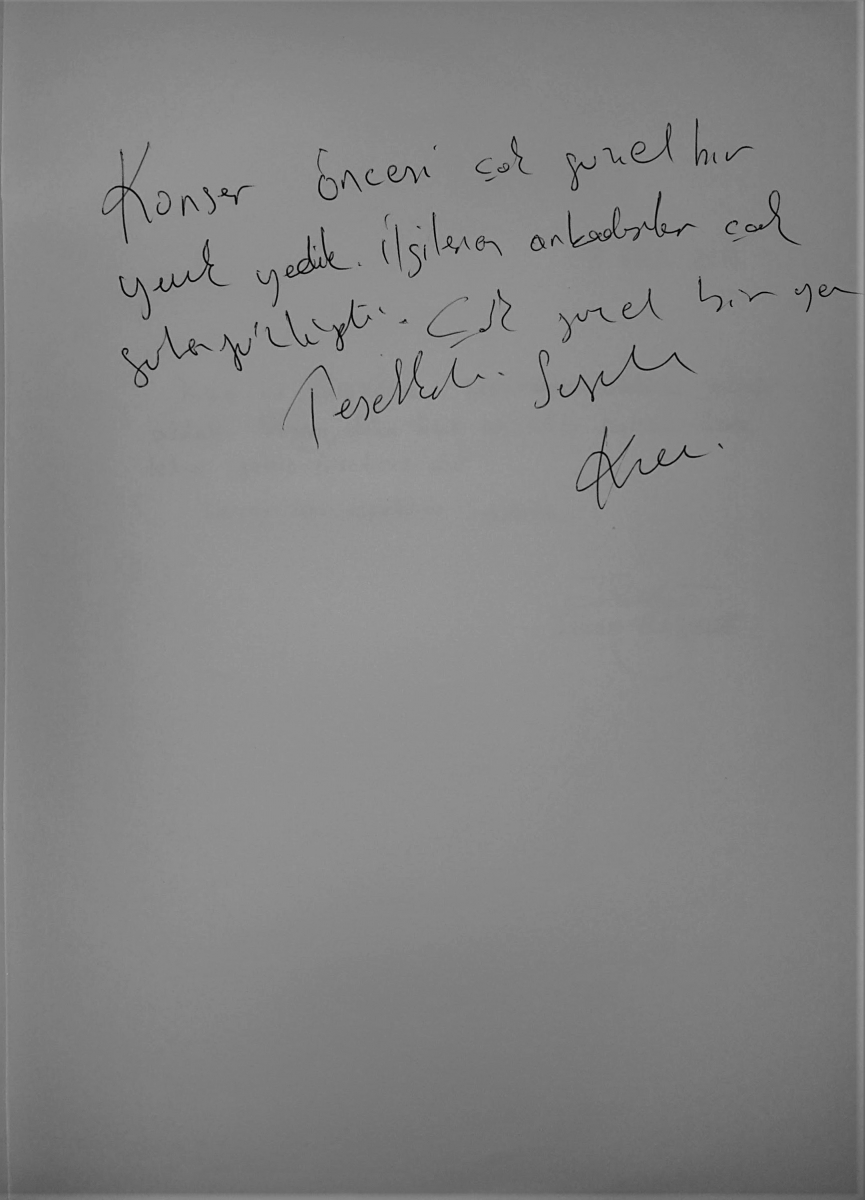 Konser öncesi çok güzel bir
yemek yedik. İlgilenen arkadaşlar çok
güleryüzlüydü. Çok güzel bir yer
Teşekkür. Sevgiler